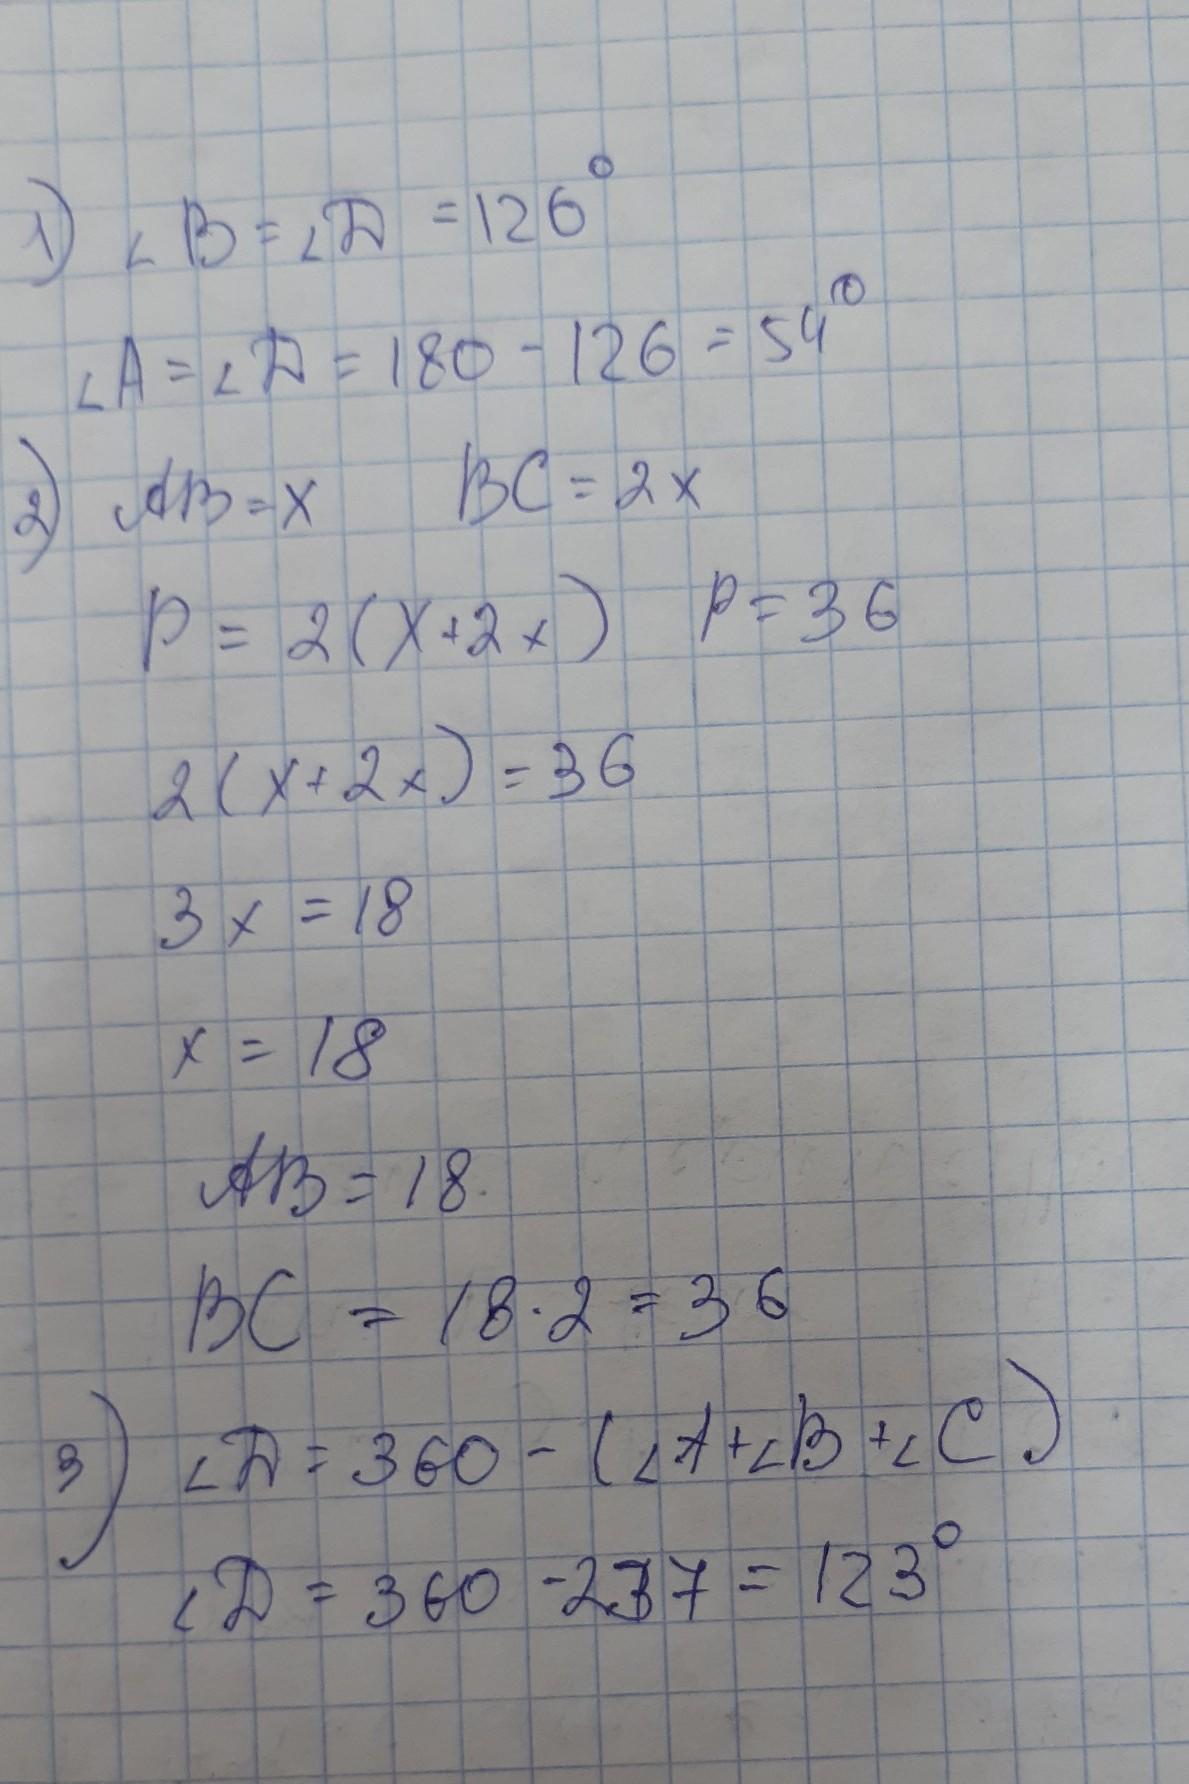 1) ∠B = ∠D = 126°
∠A = ∠D = 180 - 126 = 54°
2) AB = x BC = 2x
P = 2(x + 2x) P = 36
2(x + 2x) = 36
3x = 18
x = 18
AB = 18
BC = 18 · 2 = 36
3) ∠D = 360 - (∠A + ∠B + ∠C)
∠D = 360 - 237 = 123°